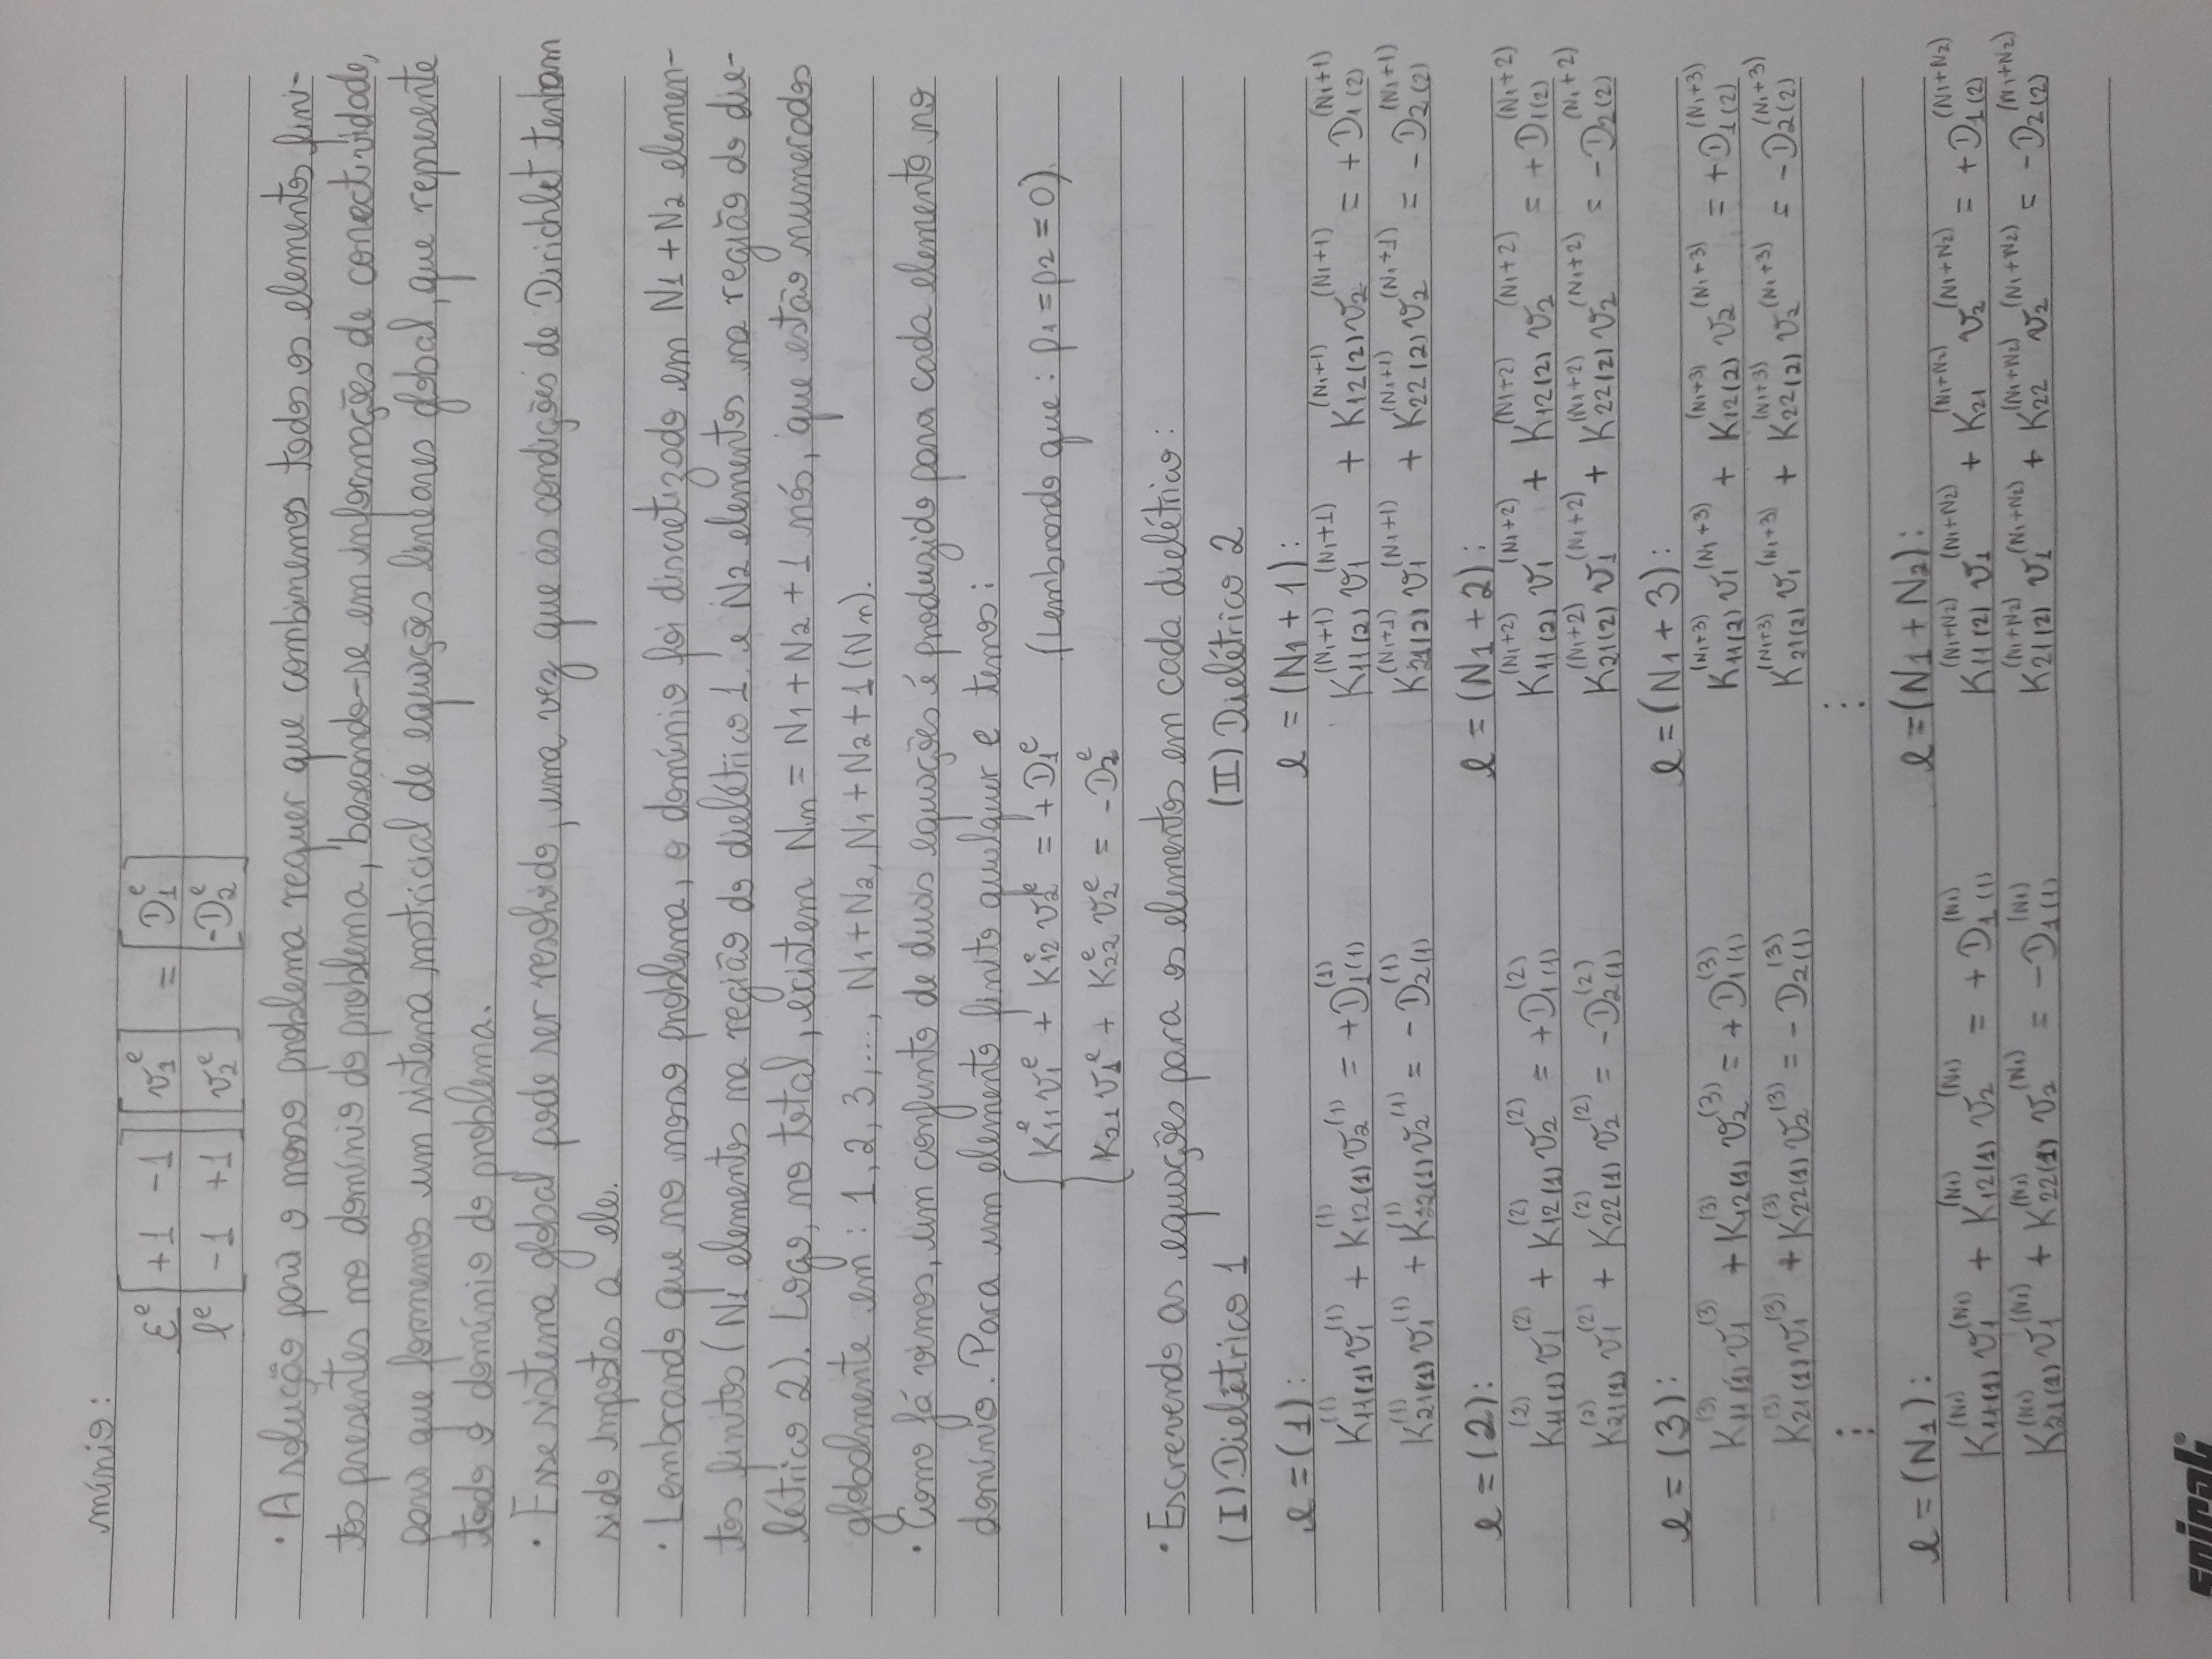 mínio:
εᵉ/ℓᵉ [+1 -1; -1 +1] [v₁ᵉ; v₂ᵉ] = [D₁ᵉ; -D₂ᵉ]
· A solução para o nosso problema requer que combinemos todos os elementos fini-
tos presentes no domínio do problema, baseando-se em informações de conectividade,
para que formemos um sistema matricial de equações lineares global, que represente
todo o domínio do problema.
· Esse sistema global pode ser resolvido, uma vez que as condições de Dirichlet tenham
sido impostas a ele.
· Lembrando que no nosso problema, o domínio foi discretizado em N1 + N2 elemen-
tos finitos (N1 elementos na região do dielétrico 1 e N2 elementos na região do die-
létrico 2). Logo, no total, existem Nn = N1 + N2 + 1 nós, que estão numerados
globalmente em: 1, 2, 3, ..., N1 + N2, N1 + N2 + 1 (Nn).
· Como já vimos, um conjunto de duas equações é produzido para cada elemento no
domínio. Para um elemento finito qualquer e temos:
K₁₁ᵉ v₁ᵉ + K₁₂ᵉ v₂ᵉ = + D₁ᵉ (Lembrando que: ρ1 = ρ2 = 0).
K₂₁ v₁ᵉ + K₂₂ᵉ v₂ᵉ = - D₂ᵉ
· Escrevendo as equações para os elementos em cada dielétrico:
(I) Dielétrico 1 (II) Dielétrico 2
e = (1): e = (N1 + 1):
K11(1)^(1) v1^(1) + K12(1)^(1) v2^(1) = +D1(1)^(1) K11(2)^(N1+1) v1^(N1+1) + K12(2)^(N1+1) v2^(N1+1) = +D1(2)^(N1+1)
K21(1)^(1) v1^(1) + K22(1)^(1) v2^(1) = -D2(1)^(1) K21(2)^(N1+1) v1^(N1+1) + K22(2)^(N1+1) v2^(N1+1) = -D2(2)^(N1+1)
e = (2): e = (N1 + 2):
K11(1)^(2) v1^(2) + K12(1)^(2) v2^(2) = +D1(1)^(2) K11(2)^(N1+2) v1^(N1+2) + K12(2)^(N1+2) v2^(N1+2) = +D1(2)^(N1+2)
K21(1)^(2) v1^(2) + K22(1)^(2) v2^(2) = -D2(1)^(2) K21(2)^(N1+2) v1^(N1+2) + K22(2)^(N1+2) v2^(N1+2) = -D2(2)^(N1+2)
e = (3): e = (N1 + 3):
K11(1)^(3) v1^(3) + K12(1)^(3) v2^(3) = +D1(1)^(3) K11(2)^(N1+3) v1^(N1+3) + K12(2)^(N1+3) v2^(N1+3) = +D1(2)^(N1+3)
K21(1)^(3) v1^(3) + K22(1)^(3) v2^(3) = -D2(1)^(3) K21(2)^(N1+3) v1^(N1+3) + K22(2)^(N1+3) v2^(N1+3) = -D2(2)^(N1+3)
⋮ ⋮
e = (N1): e = (N1 + N2):
K11(1)^(N1) v1^(N1) + K12(1)^(N1) v2^(N1) = +D1(1)^(N1) K11(2)^(N1+N2) v1^(N1+N2) + K21^(N1+N2) v2^(N1+N2) = +D1(2)^(N1+N2)
K21(1)^(N1) v1^(N1) + K22(1)^(N1) v2^(N1) = -D1(1)^(N1) K21(2)^(N1+N2) v1^(N1+N2) + K22^(N1+N2) v2^(N1+N2) = -D2(2)^(N1+N2)
spiral